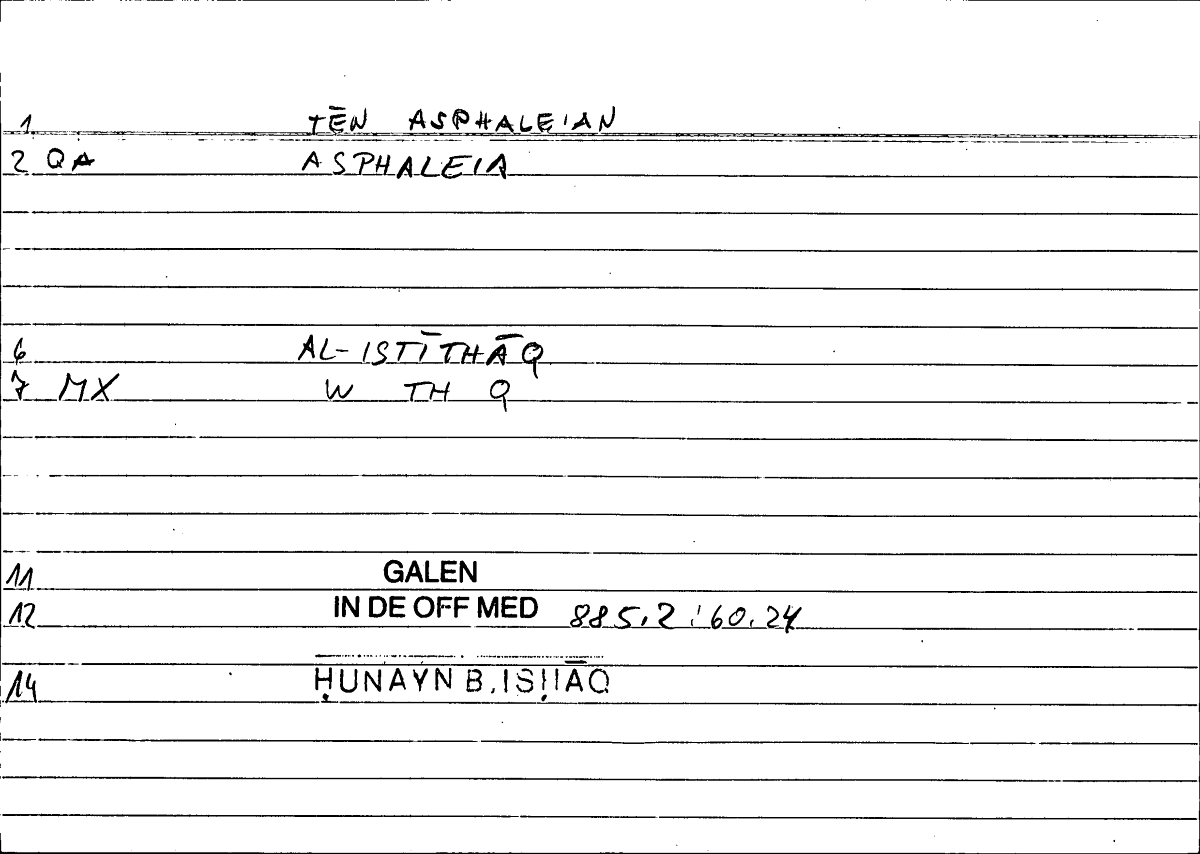 1 TĒN ASPHALEIAN
2 QA ASPHALEIA
6 AL-ISTĪTHĀQ
7 MX W TH Q
11 GALEN
12 IN DE OFF MED 885,2:60,24
14 ḤUNAYN B. ISḤĀQ